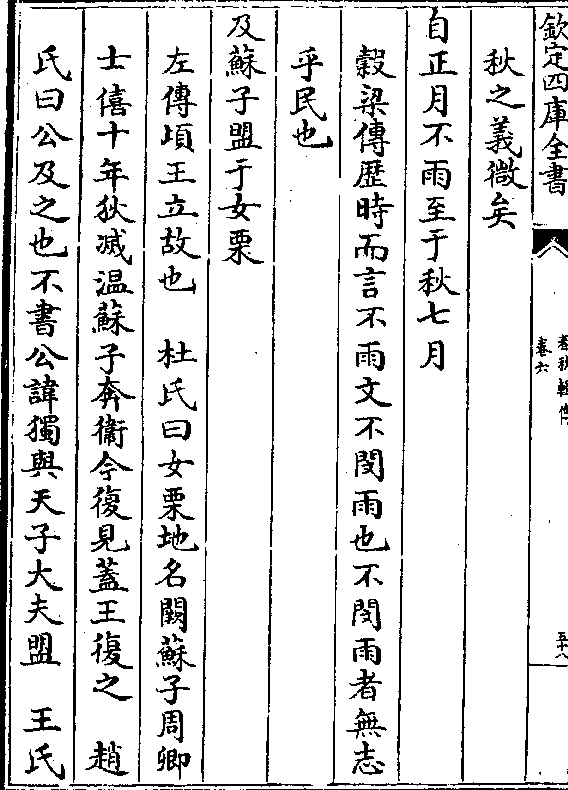 欽定四庫全書
春秋輯傳
卷六
五十八
秋之義微矣
自正月不雨至于秋七月
穀梁傳歴時而言不雨文不閔雨也不閔雨者無志
乎民也
及蘇子盟于女栗
左傳頃王立故也　杜氏曰女栗地名闕蘇子周卿
士僖十年狄滅温蘇子奔衞今復見蓋王復之　趙
氏曰公及之也不書公諱獨與天子大夫盟　王氏